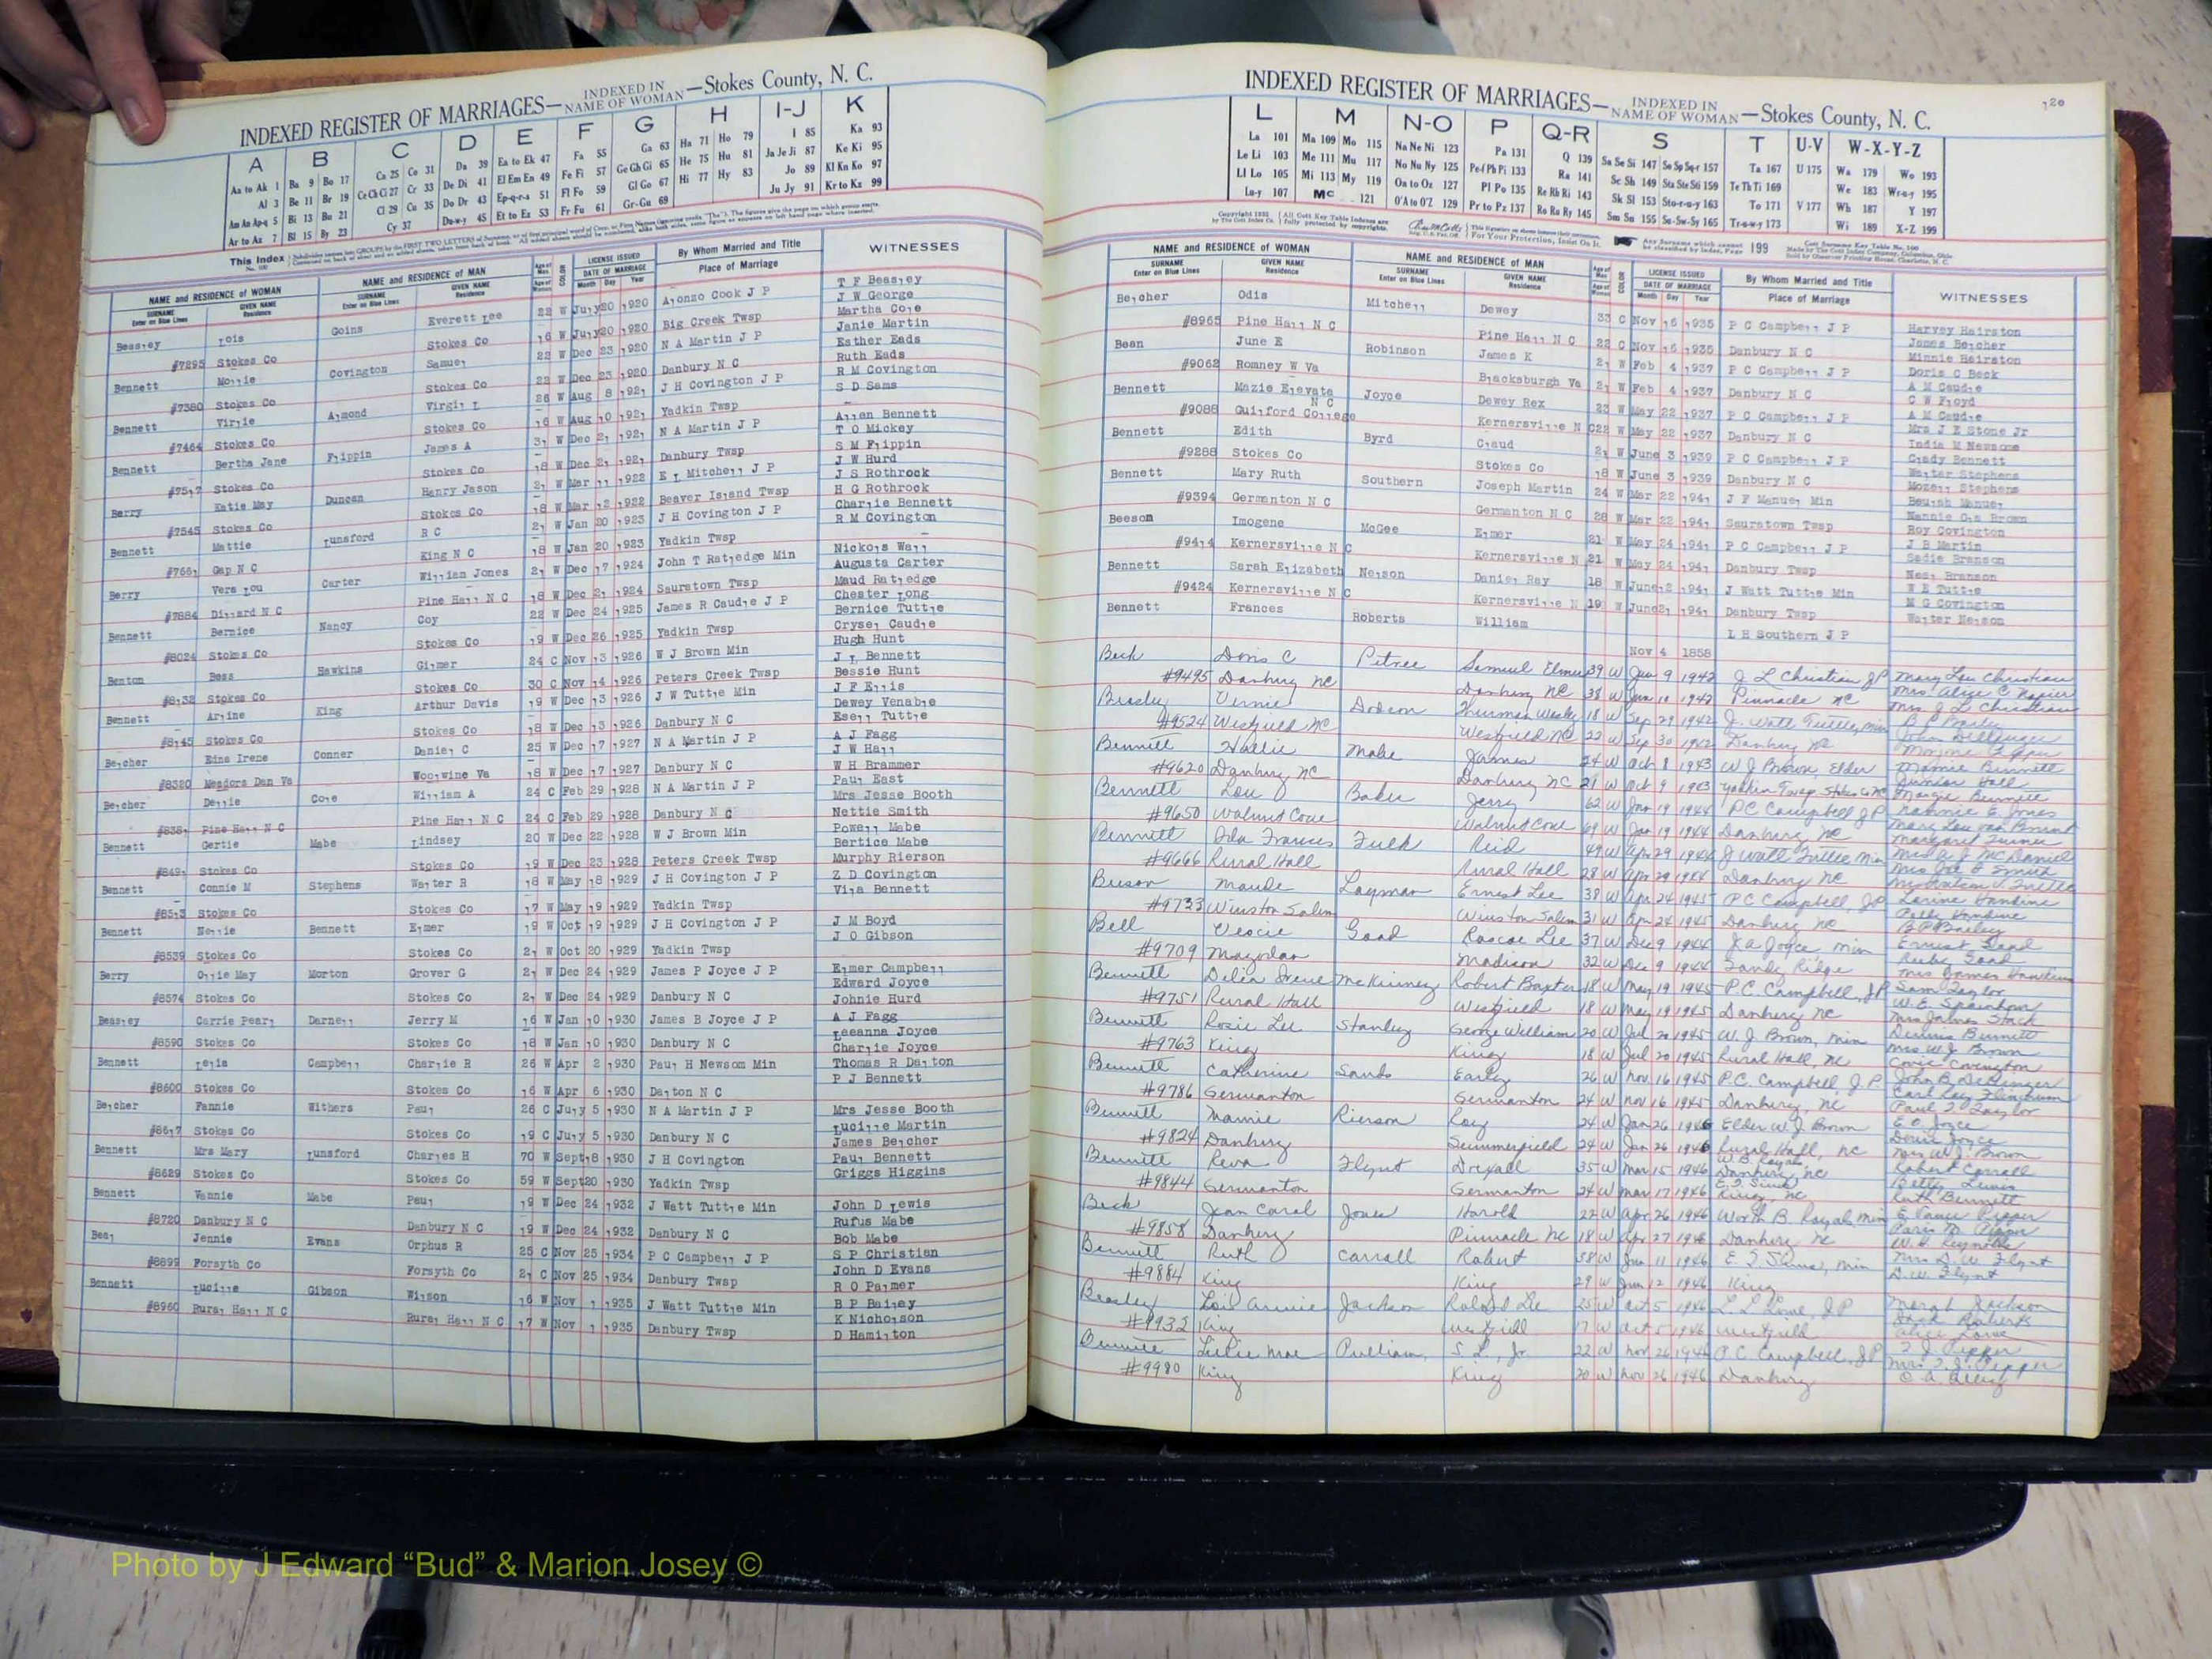 INDEXED REGISTER OF MARRIAGES—INDEXED IN NAME OF WOMAN—Stokes County, N. C.
A B C D E F G H I-J K
Aa to Ak 1 Ba 9 Bo 17 Ca 25 Co 31 Da 39 Ea to Ek 47 Fa 55 Ga 63 Ha 71 Ho 79 I 85 Ka 93
Al 3 Be 11 Br 19 Ce Ch Ci 27 Cr 33 De Di 41 El Em En 49 Fe Fi 57 Ge Gh Gi 65 He 75 Hu 81 Ja Je Ji 87 Ke Ki 95
Am An Ap-q 5 Bi 13 Bu 21 Cl 29 Cu 35 Do Dr 43 Ep-q-r-s 51 Fl Fo 59 Gl Go 67 Hi 77 Hy 83 Jo 89 Kl Kn Ko 97
Ar to Az 7 Bl 15 By 23 Cy 37 Du-w-y 45 Et to Ez 53 Fr Fu 61 Gr-Gu 69 Ju Jy 91 Kr to Kz 99
NAME and RESIDENCE OF WOMAN NAME and RESIDENCE OF MAN LICENSE ISSUED By Whom Married and Title WITNESSES
SURNAME GIVEN NAME SURNAME GIVEN NAME DATE OF MARRIAGE Place of Marriage
Enter on Blue Lines Residence Enter on Blue Lines Residence Month Day Year
Beasley Lois Goins Everett Lee 22 W July 20 1920 Alonzo Cook J P T F Beasley
J W George
#7295 Stokes Co Stokes Co 16 W July 20 1920 Big Creek Twsp Martha Cole
Bennett Mollie Covington Samuel 22 W Dec 23 1920 N A Martin J P Janie Martin
Esther Eads
#7380 Stokes Co Stokes Co 22 W Dec 23 1920 Danbury N C Ruth Eads
Bennett Virgie Almond Virgil L 26 W Aug 8 1921 J H Covington J P R M Covington
S D Sams
#7464 Stokes Co Stokes Co 16 W Aug 10 1921 Yadkin Twsp
Bennett Bertha Jane Flippin James A 31 W Dec 21 1921 N A Martin J P Allen Bennett
T O Mickey
#7517 Stokes Co Stokes Co 18 W Dec 21 1921 Danbury Twsp S M Flippin
Berry Katie May Duncan Henry Jason 21 W Mar 11 1922 E L Mitchell J P J W Hurd
J S Rothrock
#7545 Stokes Co Stokes Co 18 W Mar 12 1922 Beaver Island Twsp H G Rothrock
Bennett Mattie Lunsford R C 21 W Jan 20 1923 J H Covington J P Charlie Bennett
R M Covington
#7661 Gap N C King N C 18 W Jan 20 1923 Yadkin Twsp
Berry Vera Lou Carter William Jones 21 W Dec 17 1924 John T Ratledge Min Nickols Wall
Augusta Carter
#7884 Dillard N C Pine Hall N C 18 W Dec 21 1924 Sauratown Twsp Maud Ratledge
Bennett Bernice Nancy Coy 22 W Dec 24 1925 James R Caudle J P Chester Long
Bernice Tuttle
#8024 Stokes Co Stokes Co 19 W Dec 26 1925 Yadkin Twsp Crysel Caudle
Benton Bess Hawkins Gilmer 24 C Nov 13 1926 W J Brown Min Hugh Hunt
J L Bennett
#8132 Stokes Co Stokes Co 30 C Nov 14 1926 Peters Creek Twsp Bessie Hunt
Bennett Arline King Arthur Davis 19 W Dec 13 1926 J W Tuttle Min J F Ellis
Dewey Venable
#8145 Stokes Co Stokes Co 18 W Dec 13 1926 Danbury N C Esell Tuttle
Belcher Edna Irene Conner Daniel C 25 W Dec 17 1927 N A Martin J P A J Fagg
J W Hall
#8320 Meadors Dan Va Woolwine Va 18 W Dec 17 1927 Danbury N C W H Brammer
Belcher Dellie Cole William A 24 C Feb 29 1928 N A Martin J P Paul East
Mrs Jesse Booth
#8381 Pine Hall N C Pine Hall N C 24 C Feb 29 1928 Danbury N C Nettie Smith
Bennett Gertie Mabe Lindsey 20 W Dec 22 1928 W J Brown Min Powell Mabe
Bertice Mabe
#8491 Stokes Co Stokes Co 19 W Dec 23 1928 Peters Creek Twsp Murphy Rierson
Bennett Connie M Stephens Walter R 18 W May 18 1929 J H Covington J P Z D Covington
Vila Bennett
#8513 Stokes Co Stokes Co 17 W May 19 1929 Yadkin Twsp
Bennett Nellie Bennett Elmer 19 W Oct 19 1929 J H Covington J P J M Boyd
J O Gibson
#8539 Stokes Co Stokes Co 21 W Oct 20 1929 Yadkin Twsp
Berry Ollie May Morton Grover G 21 W Dec 24 1929 James P Joyce J P Elmer Campbell
Edward Joyce
#8574 Stokes Co Stokes Co 21 W Dec 24 1929 Danbury N C Johnie Hurd
Beasley Carrie Pearl Darnell Jerry M 16 W Jan 10 1930 James B Joyce J P A J Fagg
Leeanna Joyce
#8590 Stokes Co Stokes Co 18 W Jan 10 1930 Danbury N C Charlie Joyce
Bennett Lelia Campbell Charlie R 26 W Apr 2 1930 Paul H Newsom Min Thomas R Dalton
P J Bennett
#8600 Stokes Co Stokes Co 16 W Apr 6 1930 Dalton N C
Belcher Fannie Withers Paul 26 C July 5 1930 N A Martin J P Mrs Jesse Booth
Lucille Martin
#8617 Stokes Co Stokes Co 19 C July 5 1930 Danbury N C James Belcher
Bennett Mrs Mary Lunsford Charles H 70 W Sept 18 1930 J H Covington Paul Bennett
Griggs Higgins
#8629 Stokes Co Stokes Co 59 W Sept 20 1930 Yadkin Twsp
Bennett Vannie Mabe Paul 19 W Dec 24 1932 J Watt Tuttle Min John D Lewis
Rufus Mabe
#8720 Danbury N C Danbury N C 19 W Dec 24 1932 Danbury N C Bob Mabe
Beal Jennie Evans Orphus R 25 C Nov 25 1934 P C Campbell J P S P Christian
John D Evans
#8899 Forsyth Co Forsyth Co 21 C Nov 25 1934 Danbury Twsp R O Palmer
Bennett Lucille Gibson Wilson 16 W Nov 1 1935 J Watt Tuttle Min B P Bailey
K Nicholson
#8960 Rural Hall N C Rural Hall N C 17 W Nov 1 1935 Danbury Twsp D Hamilton
INDEXED REGISTER OF MARRIAGES—INDEXED IN NAME OF WOMAN—Stokes County, N. C. 120
L M N-O P Q-R S T U-V W-X-Y-Z
La 101 Ma 109 Mo 115 Na Ne Ni 123 Pa 131 Q 139 Sa Se Si 147 So Sp Sq-r 157 Ta 167 U 175 Wa 179 Wo 193
Le Li 103 Me 111 Mu 117 No Nu Ny 125 Pe-f Ph Pi 133 Ra 141 Sc Sh 149 Sta Ste Sti 159 Te Th Ti 169 We 183 Wr-u-y 195
Ll Lo 105 Mi 113 My 119 Oa to Oz 127 Pl Po 135 Re Rh Ri 143 Sk Sl 153 Sto-r-u-y 163 To 171 V 177 Wh 187 Y 197
Lu-y 107 Mc 121 O'A to O'Z 129 Pr to Pz 137 Ro Ru Ry 145 Sm Sn 155 Su-Sw-Sy 165 Tr-u-w-y 173 Wi 189 X-Z 199
NAME and RESIDENCE OF WOMAN NAME and RESIDENCE OF MAN LICENSE ISSUED By Whom Married and Title WITNESSES
SURNAME GIVEN NAME SURNAME GIVEN NAME DATE OF MARRIAGE Place of Marriage
Enter on Blue Lines Residence Enter on Blue Lines Residence Month Day Year
Belcher Odis Mitchell Dewey 33 C Nov 16 1935 P C Campbell J P Harvey Hairston
James Belcher
#8965 Pine Hall N C Pine Hall N C 22 C Nov 16 1935 Danbury N C Minnie Hairston
Bean June E Robinson James K 21 W Feb 4 1937 P C Campbell J P Doris C Beck
A M Caudle
#9062 Romney W Va Blacksburgh Va 21 W Feb 4 1937 Danbury N C C W Floyd
Bennett Mazie Elevate Joyce Dewey Rex 23 W May 22 1937 P C Campbell J P A M Caudle
Mrs J E Stone Jr
#9088 Guilford College N C Kernersville N C 22 W May 22 1937 Danbury N C India M Newsome
Bennett Edith Byrd Claud 21 W June 3 1939 P C Campbell J P Grady Bennett
Walter Stephens
#9288 Stokes Co Stokes Co 18 W June 3 1939 Danbury N C Mozell Stephens
Bennett Mary Ruth Southern Joseph Martin 24 W Mar 22 1941 J F Manuel Min Beulah Manuel
#9394 Germanton N C Germanton N C 28 W Mar 22 1941 Sauratown Twsp Roy Covington
Beeson Imogene McGee Elmer 21 W May 24 1941 P C Campbell J P J B Martin
Sadie Branson
#9414 Kernersville N C Kernersville N 21 W May 24 1941 Danbury Twsp Neal Branson
Bennett Sarah Elizabeth Nelson Daniel Ray 18 W June 12 1941 J Watt Tuttle Min W E Tuttle
M G Covington
#9424 Kernersville N C Kernersville N 19 W June 21 1941 Danbury Twsp Walter Nelson
Bennett Frances Roberts William L H Southern J P
Nov 4 1858
Beck Doris C Petree Samuel Elmer 39 W Jun 9 1942 J L Christian JP Mary Lou Christian
Mrs Alice C Napier
#9495 Danbury NC Danbury NC 38 W Jun 10 1942 Pinnacle NC Mrs J L Christian
Beasley Vernie Dodson Thurman Wesley 18 W Sep 29 1942 J. Watt Tuttle, Min
John Dellinger
#9524 Westfield NC Westfield NC 22 W Sep 30 1942 Danbury NC
Bennett Hallie Mabe James 24 W Oct 8 1943 W J Brown, Elder Mamie Bennett
Junior Hall
#9620 Danbury NC Danbury NC 21 W Oct 9 1943 Yadkin Twsp Stokes Co NC Margie Bennett
Bennett Lou Baker Jerry 62 W Jan 19 1944 P C Campbell JP
#9650 Walnut Cove Walnut Cove 69 W Jan 19 1944 Danbury NC Margaret Turner
Bennett Ida Frances Fulk Reid 49 W Apr 29 1944 J Watt Tuttle Min Mrs A J McDaniel
#9666 Rural Hall Rural Hall 28 W Apr 29 1944 Danbury NC
Beeson Maude Layman Ernest Lee 38 W Apr 24 1945 P C Campbell, JP
#9733 Winston Salem Winston Salem 31 W Apr 24 1945 Danbury NC B P Bailey
Bell Veocie Goad Roscoe Lee 37 W Dec 9 1944 J A Joyce, Min Ernest Goad
Ruby Goad
#9709 Mayodan Madison 32 W Dec 9 1944 Sandy Ridge Mrs James Hawkins
Bennett Delia Irene McKinney Robert Baxter 18 W May 19 1945 P.C. Campbell, JP Sam Taylor
#9751 Rural Hall Westfield 18 W May 19 1945 Danbury NC Mrs James Stack
Bennett Rosie Lee Stanley George William 20 W Jul 20 1945 W. J. Brown, Min Dennis Bennett
Mrs W J Brown
#9763 King King 18 W Jul 20 1945 Rural Hall, NC
Bennett Catherine Sands Early 26 W Nov 16 1945 P.C. Campbell, J.P. John B. Dellinger
#9786 Germanton Germanton 24 W Nov 16 1945 Danbury, NC Paul T. Taylor
Bennett Mamie Rierson Roy 24 W Jan 26 1946 Elder W J Brown E O Joyce
#9824 Danbury Summerfield 24 W Jan 26 1946 Rural Hall, NC Mrs W J Brown
Bennett Reva Flynt Drexall 35 W Mar 15 1946 Danbury NC Robert Carroll
Betty Lewis
#9844 Germanton Germanton 24 W Mar 17 1946 King, NC Ruth Bennett
Beck Jean Carol Jones Harold 22 W Apr 26 1946 Worth B. Royals, Min E Vance Pepper
#9858 Danbury Pinnacle NC 18 W Apr 27 1946 Danbury NC W. G. Reynolds
Bennett Ruth Carroll Robert 38 W Jun 11 1946 E. S. Sims, Min Mrs D. W. Flynt
D. W. Flynt
#9884 King King 29 W Jun 12 1946 King
Beasley Lois Annie Jackson Ralph Lee 25 W Oct 5 1946 L. L. Lowe, JP
#9932 King Westfield 17 W Oct 5 1946 Westfield Alice Lowe
Bennett Lillie Mae Pulliam, S. L., Jr. 22 W Nov 26 1946 P. C. Campbell, JP T. J. Pepper
Mrs T. J. Pepper
#9980 King King 20 W Nov 26 1946 Danbury
Photo by J Edward “Bud” & Marion Josey ©